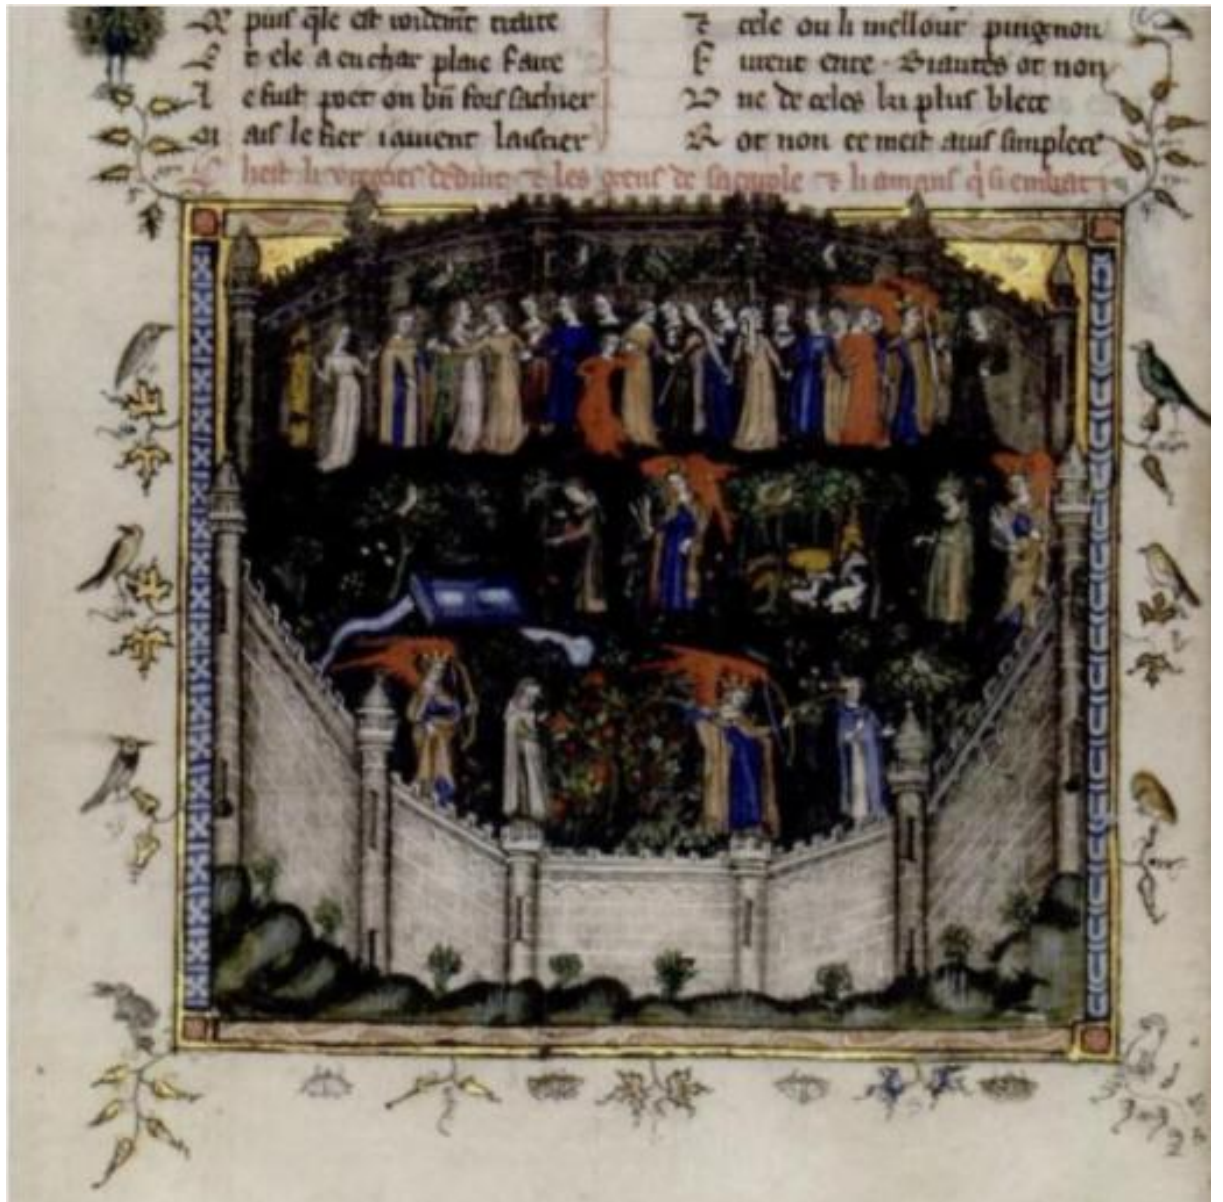 puis q̃le est
t ele a en char plaie faite
L e fust poet on bñ fors sachier
M ais le fier laissier
cele ou li mellour pingnon
F urent ente. Biautes ot non
U ne de celes ki plus blece
R ot non ce mest auis simplece
C hest li vergiers deduit les gens de li amans q̃ si embat